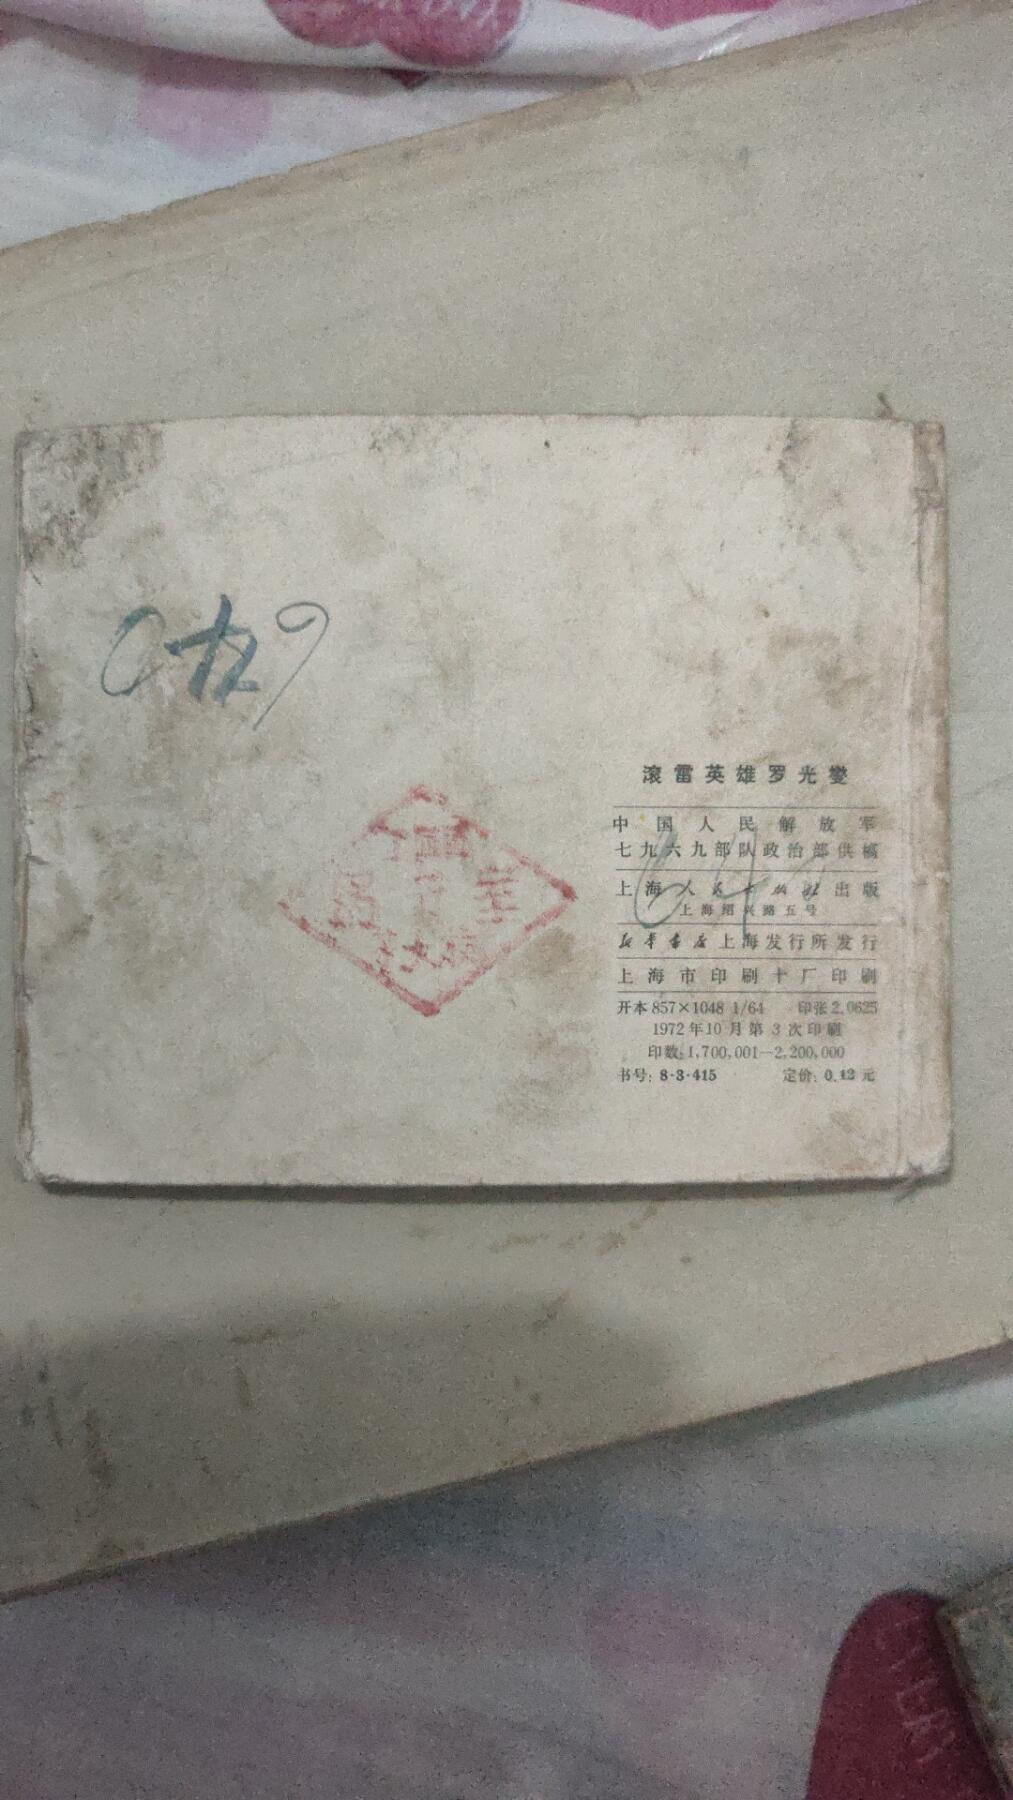 滚雷英雄罗光燮
中国人民解放军
七九六九部队政治部供稿
上海人民出版社出版
上海绍兴路五号
新华书店上海发行所发行
上海市印刷十厂印刷
开本 857×1048 1/64 印张 2.0625
1972年10月第3次印刷
印数:1,700,001—2,200,000
书号: 8·3·415 定价: 0.12 元